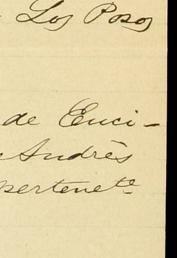 Los Posos
de Enci-
Andrés
pertenete